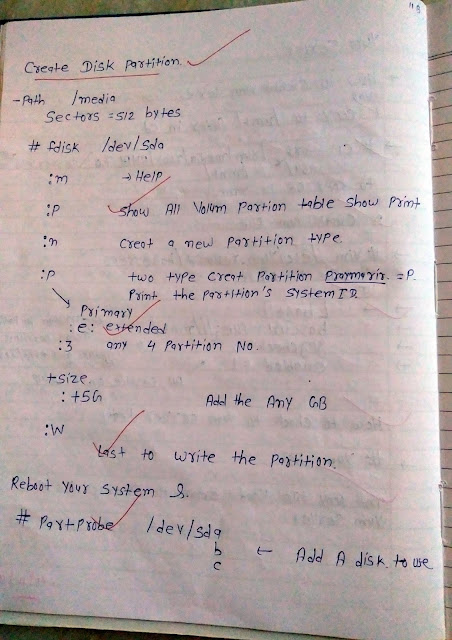 Create Disk Partition
-Path /media
Sectors = 512 bytes
# fdisk /dev/sda
:m → Help
:P show All Volum Partion table show Print
:n Creat a new Partition type.
:P two type Creat Partition = P.
Print the Partition's System ID.
Primary
:e: extended
:3 any 4 Partition No.
+size
: +5G Add the Any GB
:W
Last to write the Partition.
Reboot Your System &.
# PartProbe /dev/sda
b ← Add A disk to use
c